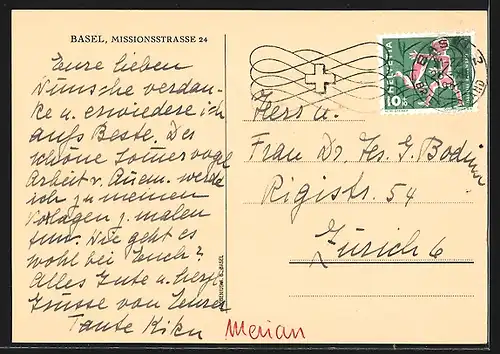 BASEL, MISSIONSSTRASSE 24
Eure lieben
Wünsche verdan-
ke u. erwiedere ich
aufs Beste. Der
schöne
Arbeit v. werde
ich zu meinen
Vorlagen z. malen
tun. Wie geht es
wohl bei Euch?
Alles Gute u. herzl.
Grüsse von Eurer
Tante Kiku Merian
HELVETIA
10
Herr u.
Frau Dr. Hs. G. Bodmer
Rigistr. 54
Zürich 6